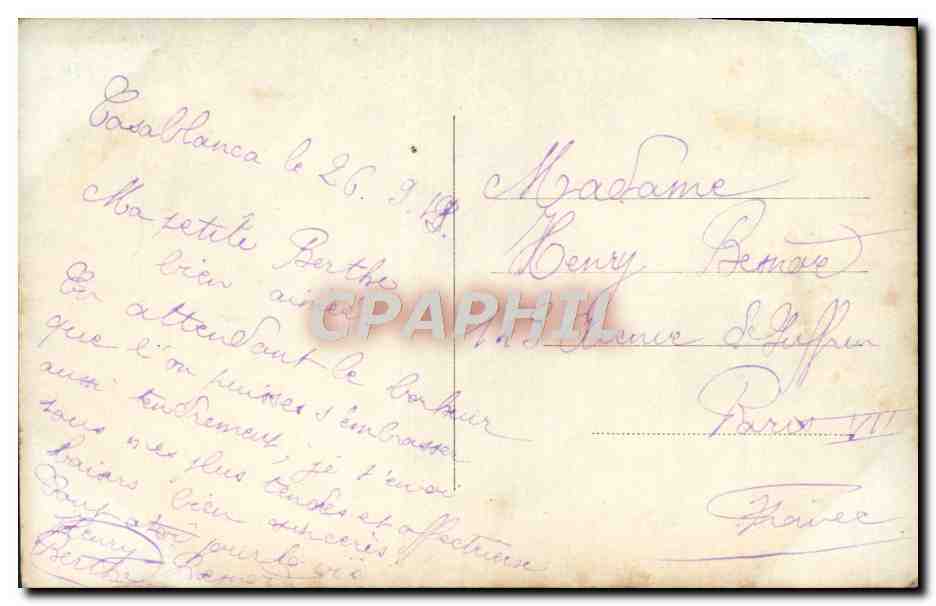 Casablanca le 26.9.18.
Ma petite Berthe
bien aimée
En attendant le bonheur
que l'on puisses s'embrasser
aussi tendrement, je t'envoi
tous mes plus tendres et affectueux
baisers bien sincères
pour la vie
Henry
Berthe
Madame
Henry
Avenue de Suffren
Paris VII
France
CPAPHIL